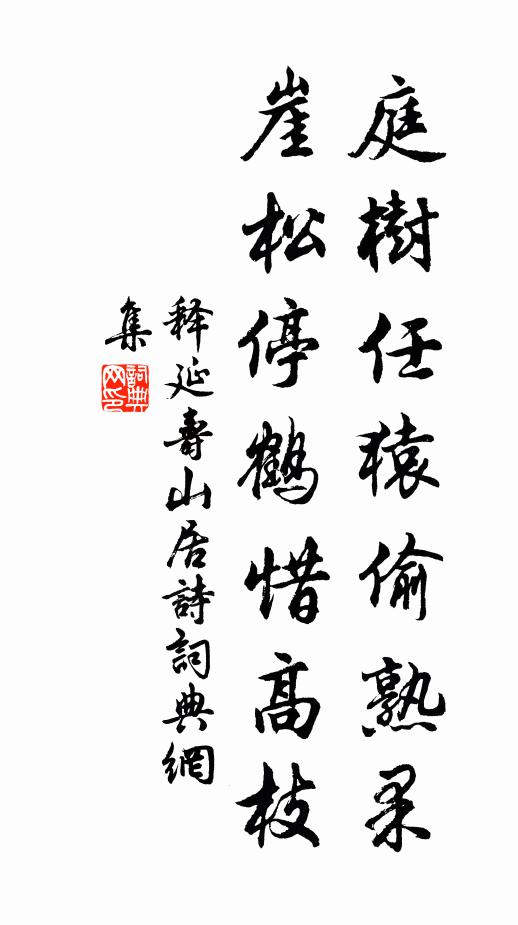 庭樹任猿偷熟果
崖松停鶴惜高枝
释延壽山居詩詞典網
集
詞典网印